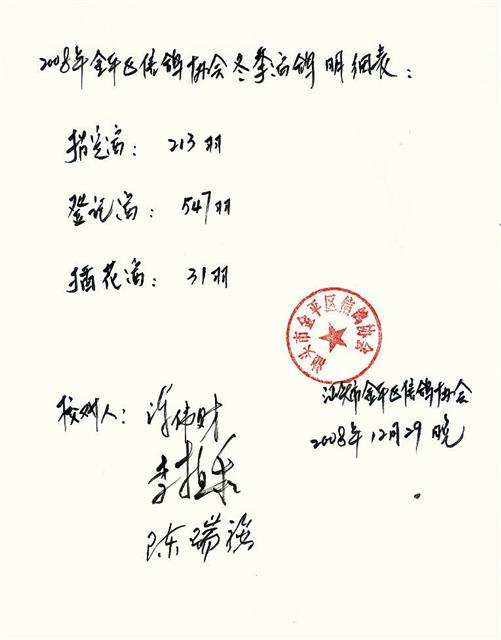 2008年金平区信鸽协会冬季交鸽明细表：
指定鸽： 213羽
登记鸽： 547羽
插花鸽： 31羽
汕头市金平区信鸽协会
校对人：
汕头市金平区信鸽协会
2008年12月29晚
陈瑞